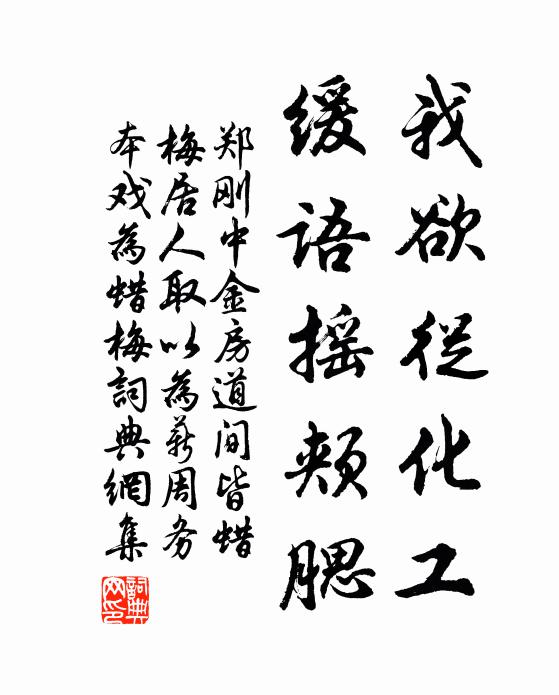 我欲從化工
緩語摇頰腮
郑刚中金房道间皆蜡
梅居人取以為薪周务
本戏為蜡梅詞典網集
詞典網印